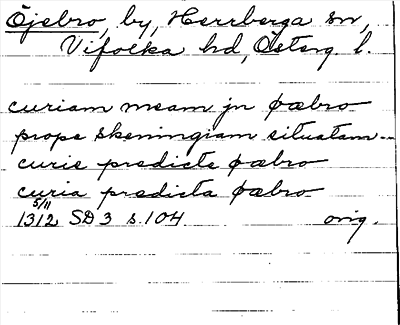 Öjebro, by, Herrberga sn,
Vifolka hd, Österg. l.
curiam meam jn øæbro
prope skeningiam situatam
curie predicte øæbro
curia predicta øæbro
5/11
1312 SD 3 s. 104 orig.